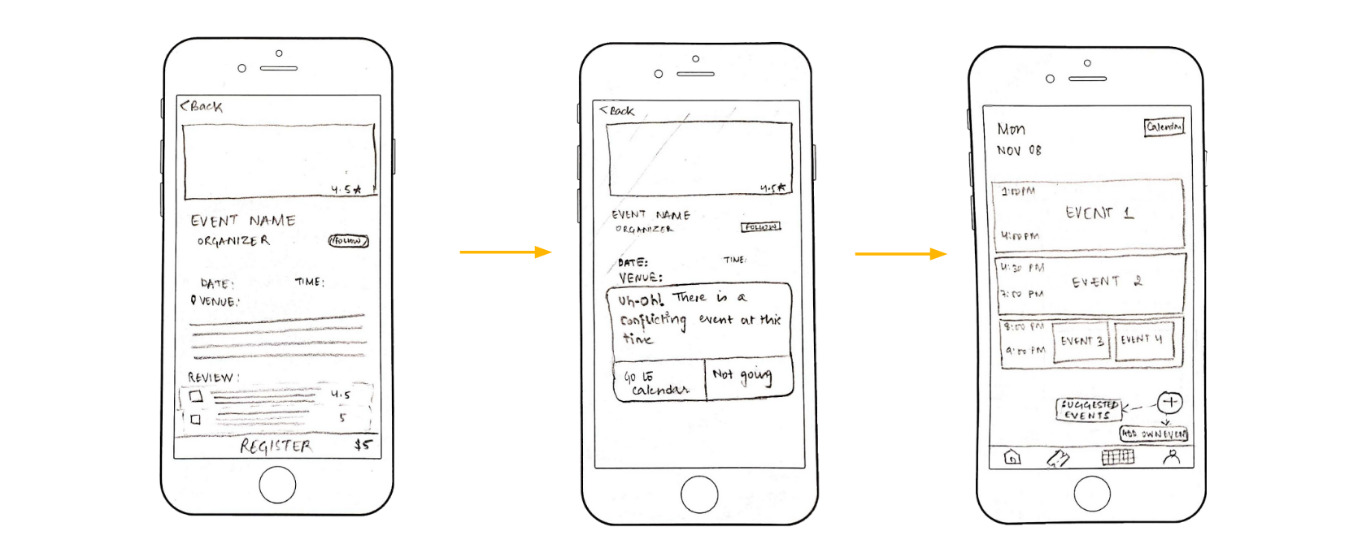 <Back
4.5★
EVENT NAME
ORGANIZER
FOLLOW
DATE:
TIME:
VENUE:
REVIEW:
4.5
5
REGISTER $5
<Back
4.5★
EVENT NAME
ORGANIZER
DATE:
TIME:
VENUE:
Uh-Oh! There is a
conflicting event at this
time
Go to
calendar
Not going
Mon
Calendar
NOV 08
EVENT 1
4:00 PM
4:30 PM
EVENT 2
7:00 PM
8:00 PM
EVENT 3
EVENT 4
9:00 PM
+
SUGGESTED
EVENTS
ADD OWN EVENT